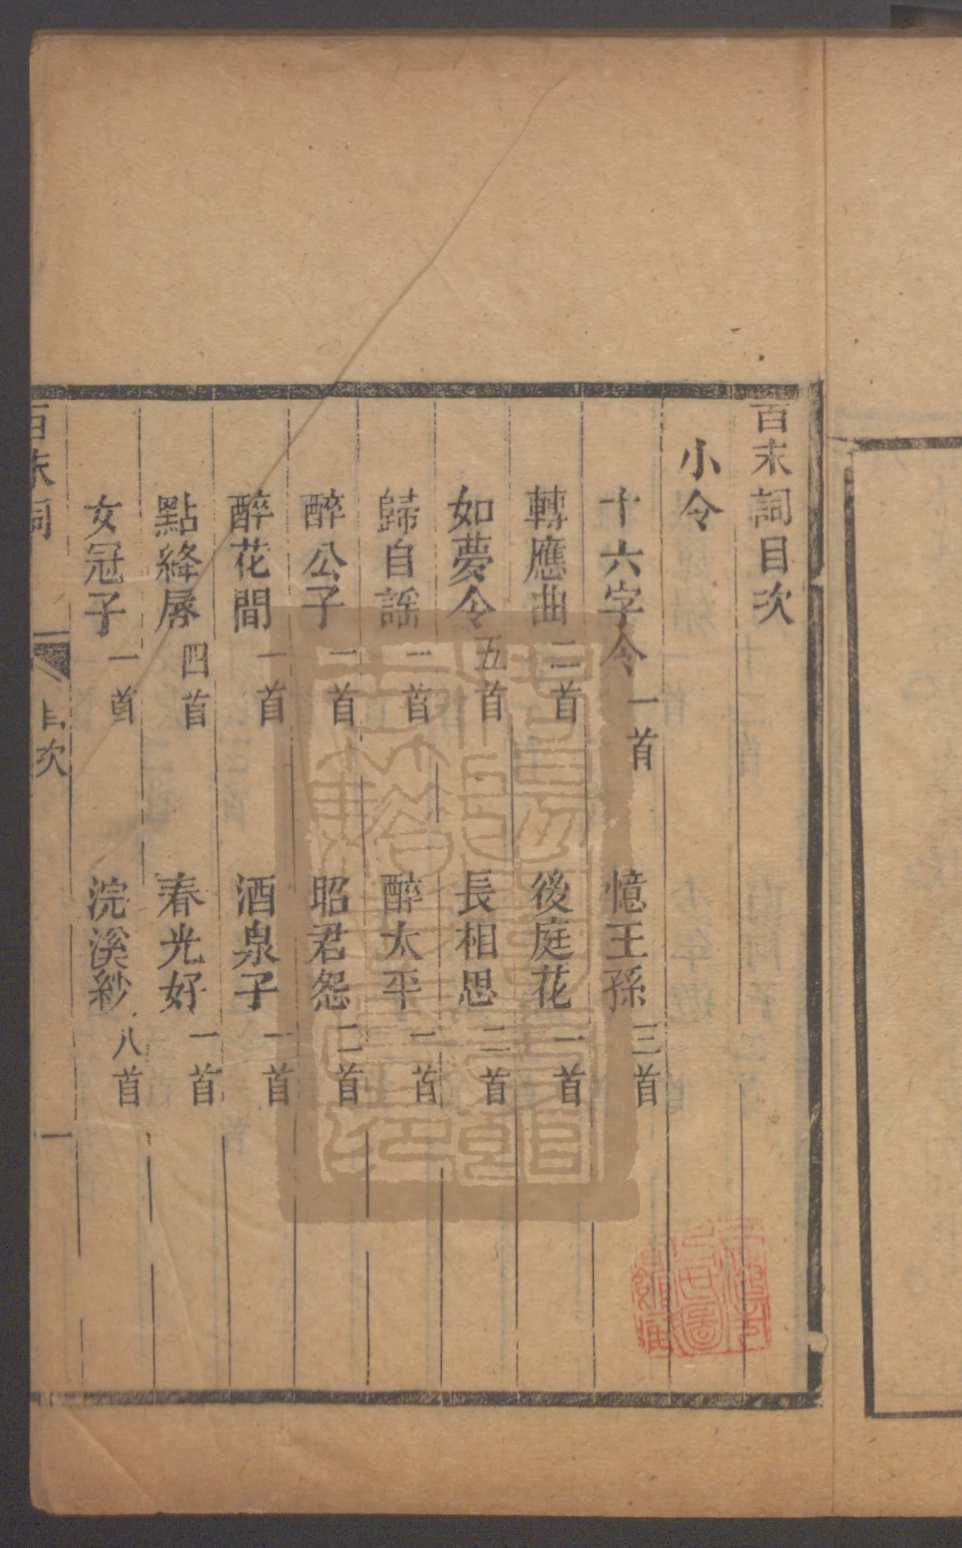 百末詞目次
小令
十六字令一首　憶王孫三首
轉應曲二首　後庭花一首
如夢令五首　長相思二首
歸自謠一首　醉太平一首
醉公子一首　昭君怨二首
醉花間一首　酒泉子一首
點絳脣四首　春光好一首
女冠子一首　浣溪紗八首
百末詞　目次　一